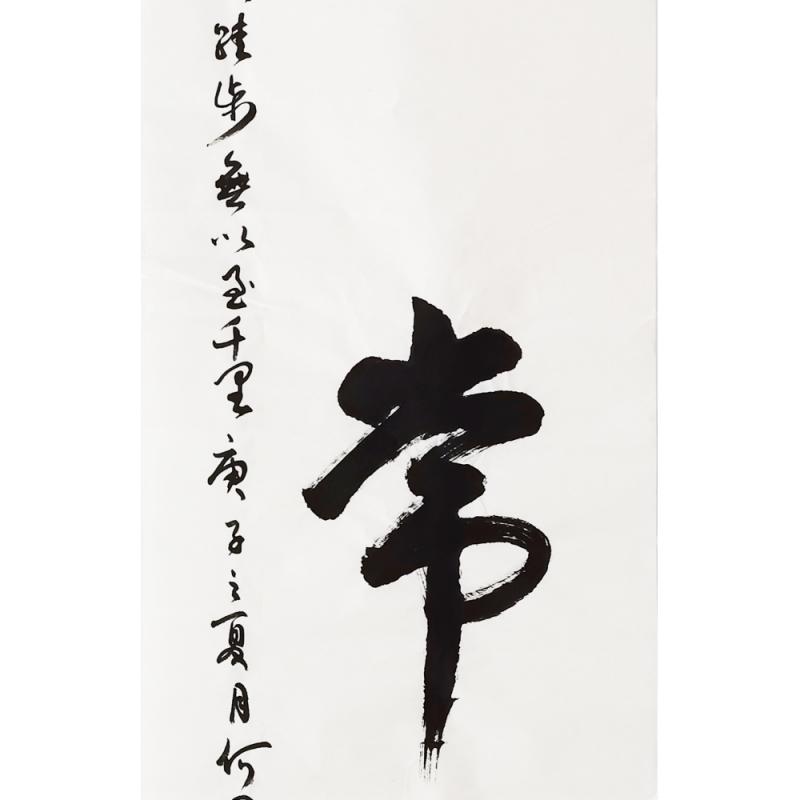 常
跬步無以至千里庚子之夏月何